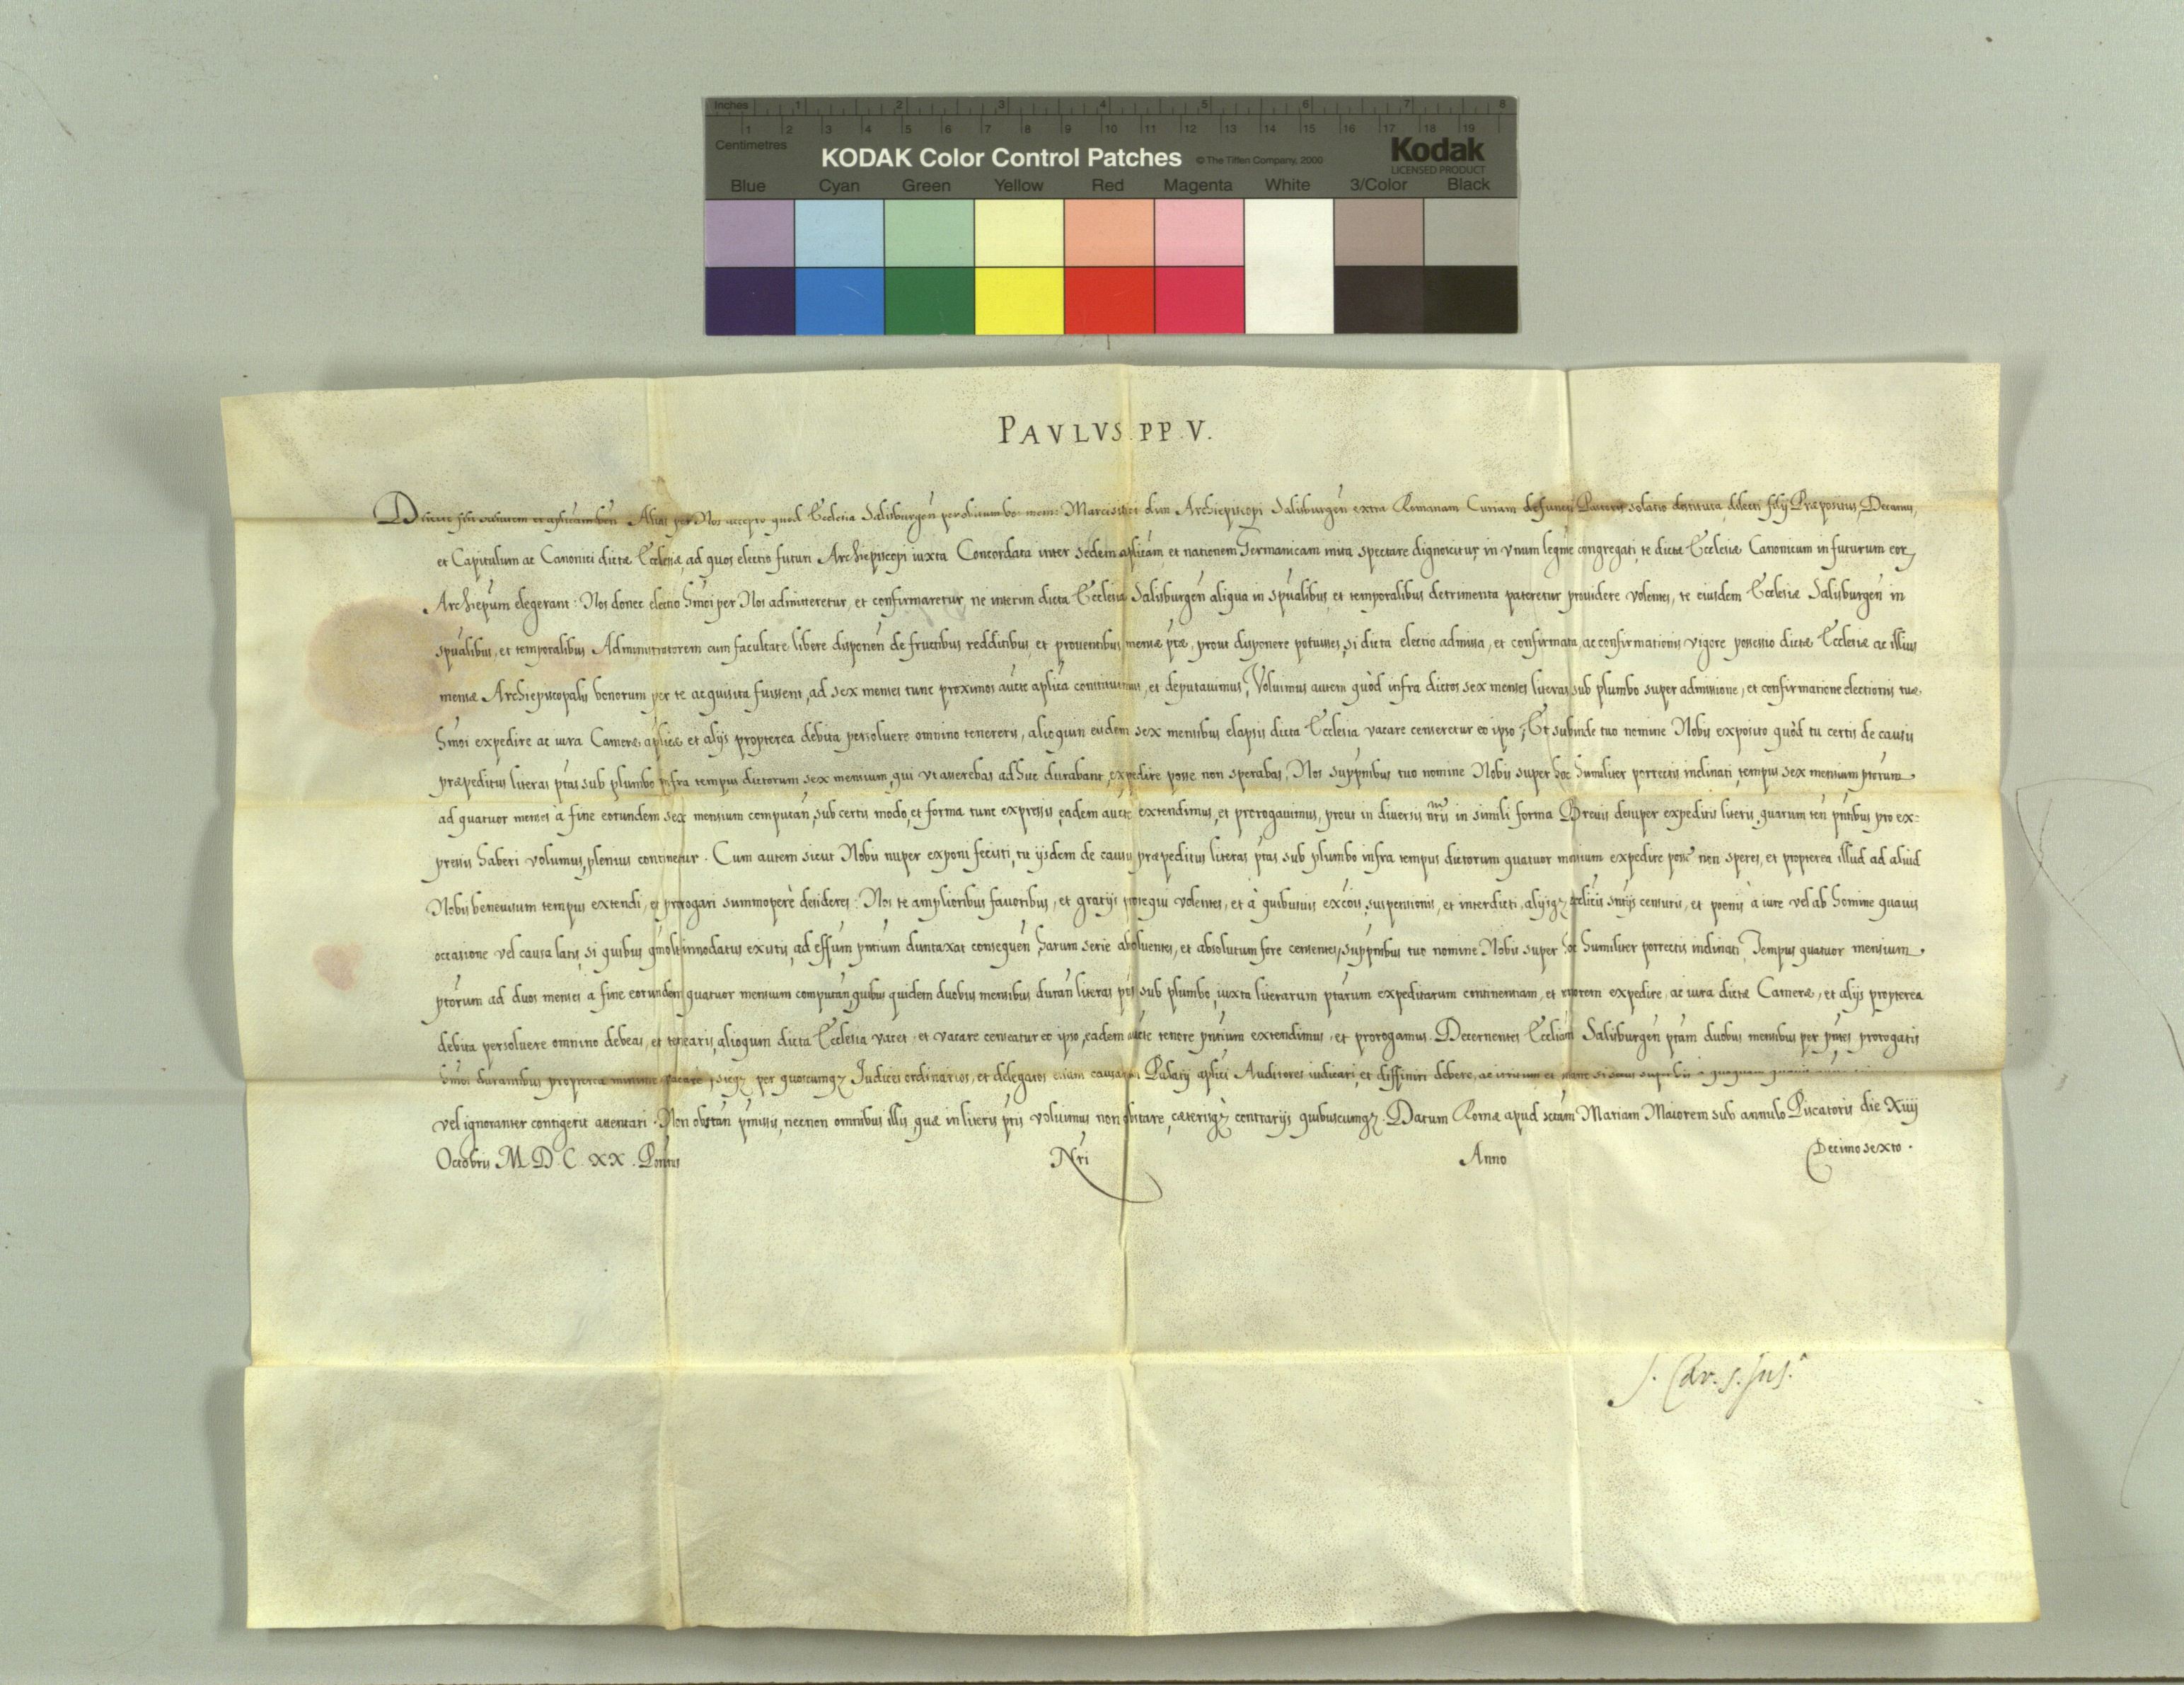 Inches 1 2 3 4 5 6 7 8
1 2 3 4 5 6 7 8 9 10 11 12 13 14 15 16 17 18 19
Centimetres
KODAK Color Control Patches © The Tiffen Company, 2000 Kodak
LICENSED PRODUCT
Blue Cyan Green Yellow Red Magenta White 3/Color Black
PAVLVS . PP . V.
Dilecte fili salutem et aplicam ben. Alias per Nos accepto quod Ecclesia Salisburgen per obitum bo: mem: Marci Sittici dum Archiepiscopi Salisburgen extra Romanam Curiam defuncti Pastoris solatio destituta, dilecti filij Præpositus, Decanus,
et Capitulum ac Canonici dictæ Ecclesiæ, ad quos electio futuri Archiepiscopi iuxta Concordata inter sedem aplicam, et nationem Germanicam inita spectare dignoscitur, in vnum legme congregati, te dictæ Ecclesiæ Canonicum in futurum eor
Archiepum elegerant: Nos donec electio hmoi per Nos admitteretur, et confirmaretur, ne interim dicta Ecclesia Salisburgen aliqua in spualibus, et temporalibus detrimenta pateretur prouidere volentes, te eiusdem Ecclesiæ Salisburgen in
spualibus, et temporalibus Administratorem cum facultate libere disponen de fructibus redditibus, et prouentibus mensæ ptæ, prout disponere potuisses, si dicta electio admissa, et confirmata, ac confirmationis vigore possessio dictæ Ecclesiæ ac illius
mensæ Archiepiscopalis bonorum per te acquisita fuissent, ad sex menses tunc proximos aucte aplica constituimus, et deputauimus, Voluimus autem quòd infra dictos sex menses literas sub plumbo super admissione, et confirmatione electionis tuæ
hmoi expedire ac iura Cameræ aplicæ et alijs propterea debita persoluere omnino tenereris, alioquin eisdem sex mensibus elapsis dicta Ecclesia vacare censeretur eo ipso; Et subinde tuo nomine Nobis exposito quòd tu certis de causis
præpeditus literas ptas sub plumbo infra tempus dictorum sex mensium, qui vt asserebas adhuc durabant, expedire posse non sperabas, Nos suppnibus tuo nomine Nobis super hoc humiliter porrectis inclinati, tempus sex mensium ptorum
ad quatuor menses à fine eorundem sex mensium computan, sub certis modo, et forma tunc expressis, eadem aucte extendimus, et prorogauimus, prout in diuersis nris in simili forma Breuis desuper expeditis literis, quarum ten pntibus pro ex-
pressis haberi volumus, plenius continetur. Cum autem sicut Nobis nuper exponi fecisti, tu ijsdem de causis præpeditus literas ptas sub plumbo infra tempus dictorum quatuor mensium expedire posse non speres, et propterea illud ad aliud
Nobis beneuisum tempus extendi, et prorogari summoperè desideres: Nos te amplioribus fauoribus, et gratijs prosequi volentes, et à quibusuis excois, suspensionis, et interdicti, alijsq; ecclicis sntijs censuris, et poenis à iure vel ab homine quauis
occasione vel causa latis, si quibus qmolt innodatus existis, ad effum pntium duntaxat consequen, harum serie absoluentes, et absolutum fore censentes, suppnibus tuo nomine Nobis super hoc humiliter porrectis inclinati, Tempus quatuor mensium
ptorum ad duos menses a fine eorundem quatuor mensium computan, quibus quidem duobus mensibus duran literas ptas sub plumbo, iuxta literarum ptarum expeditarum continentiam, et tenorem expedire, ac iura dictæ Cameræ, et alijs propterea
debita persoluere omnino debeas, et tenearis, alioquin dicta Ecclesia vacet, et vacare censeatur eo ipso, eadem aucte tenore pntium extendimus, et prorogamus. Decernentes Eccliam Salisburgen ptam duobus mensibus per pntes prorogatis
hmoi durantibus propterea minime vacare, sicq; per quoscumq; Iudices ordinarios, et delegatos etiam causarum Palatij aplici Auditores iudicari, et diffiniri debere, ac irritum et inane si secus super his a quoquam quauis
vel ignoranter contigerit attentari. Non obstan pmissis, necnon omnibus illis, quæ in literis ptis voluimus non obstare, cæterisq; contrarijs quibuscumq;. Datum Romæ apud sctam Mariam Maiorem sub annulo Piscatoris die Xiiij
Octobris M. D. C. XX. Pontus Nri Anno Decimosexto.
S. Car. S. Sus.